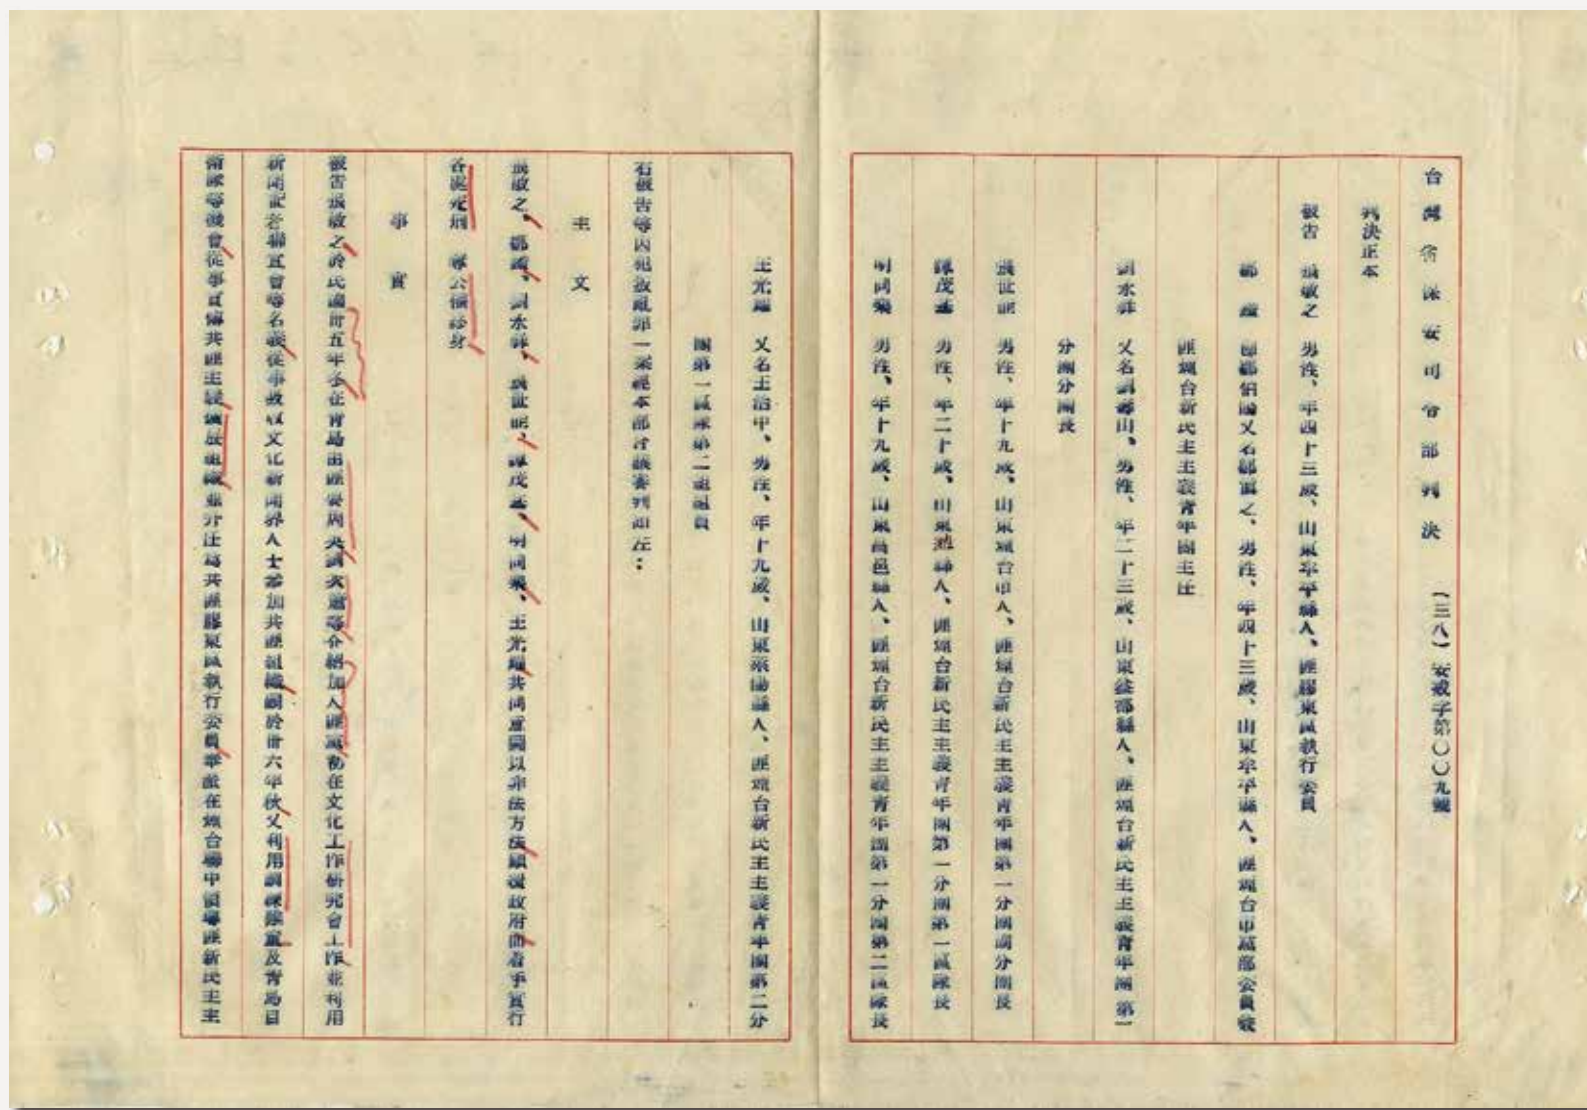 台灣省保安司令部判決 (三八)安戒字第〇〇九號
判決正本
被告 張敏之 男性、年四十三歲、山東牟平縣人、匪膠東區執行委員
鄒鑑 即鄒伯陽又名鄒鑑之、男性、年四十三歲、山東牟平縣人、匪煙台市黨部委員兼
匪煙台新民主主義青年團主任
劉永祥 又名劉壽山、男性、年二十三歲、山東益都縣人、匪煙台新民主主義青年團第一
分團分團長
張世能 男性、年十九歲、山東煙台市人、匪煙台新民主主義青年團第一分團副分團長
譚茂基 男性、年二十歲、山東縣人、匪煙台新民主主義青年團第一分團第一區隊長
明同樂 男性、年十九歲、山東昌邑縣人、匪煙台新民主主義青年團第一分團第二區隊長
王光耀 又名王治中、男性、年十九歲、山東萊陽縣人、匪煙台新民主主義青年團第二分
團第一區隊第二組組員
右被告等因犯叛亂罪一案經本部會議審判如左:
主文
張敏之、鄒鑑、劉永祥、張世能、譚茂基、明同樂、王光耀共同意圖以非法方法顛覆政府而着手實行
各處死刑 褫奪公權終身
事實
被告張敏之於民國卅五年冬在青島由匪介紹加入匪黨初在文化工作研究會工作並利用
新聞記者聯誼會等名義從事吸收文化新聞界人士參加共匪組織嗣於卅六年秋又利用及青島日
報等機會從事宣傳共匪主義發展組織並升任為共匪膠東區執行委員奉派在煙台聯中領導匪新民主主